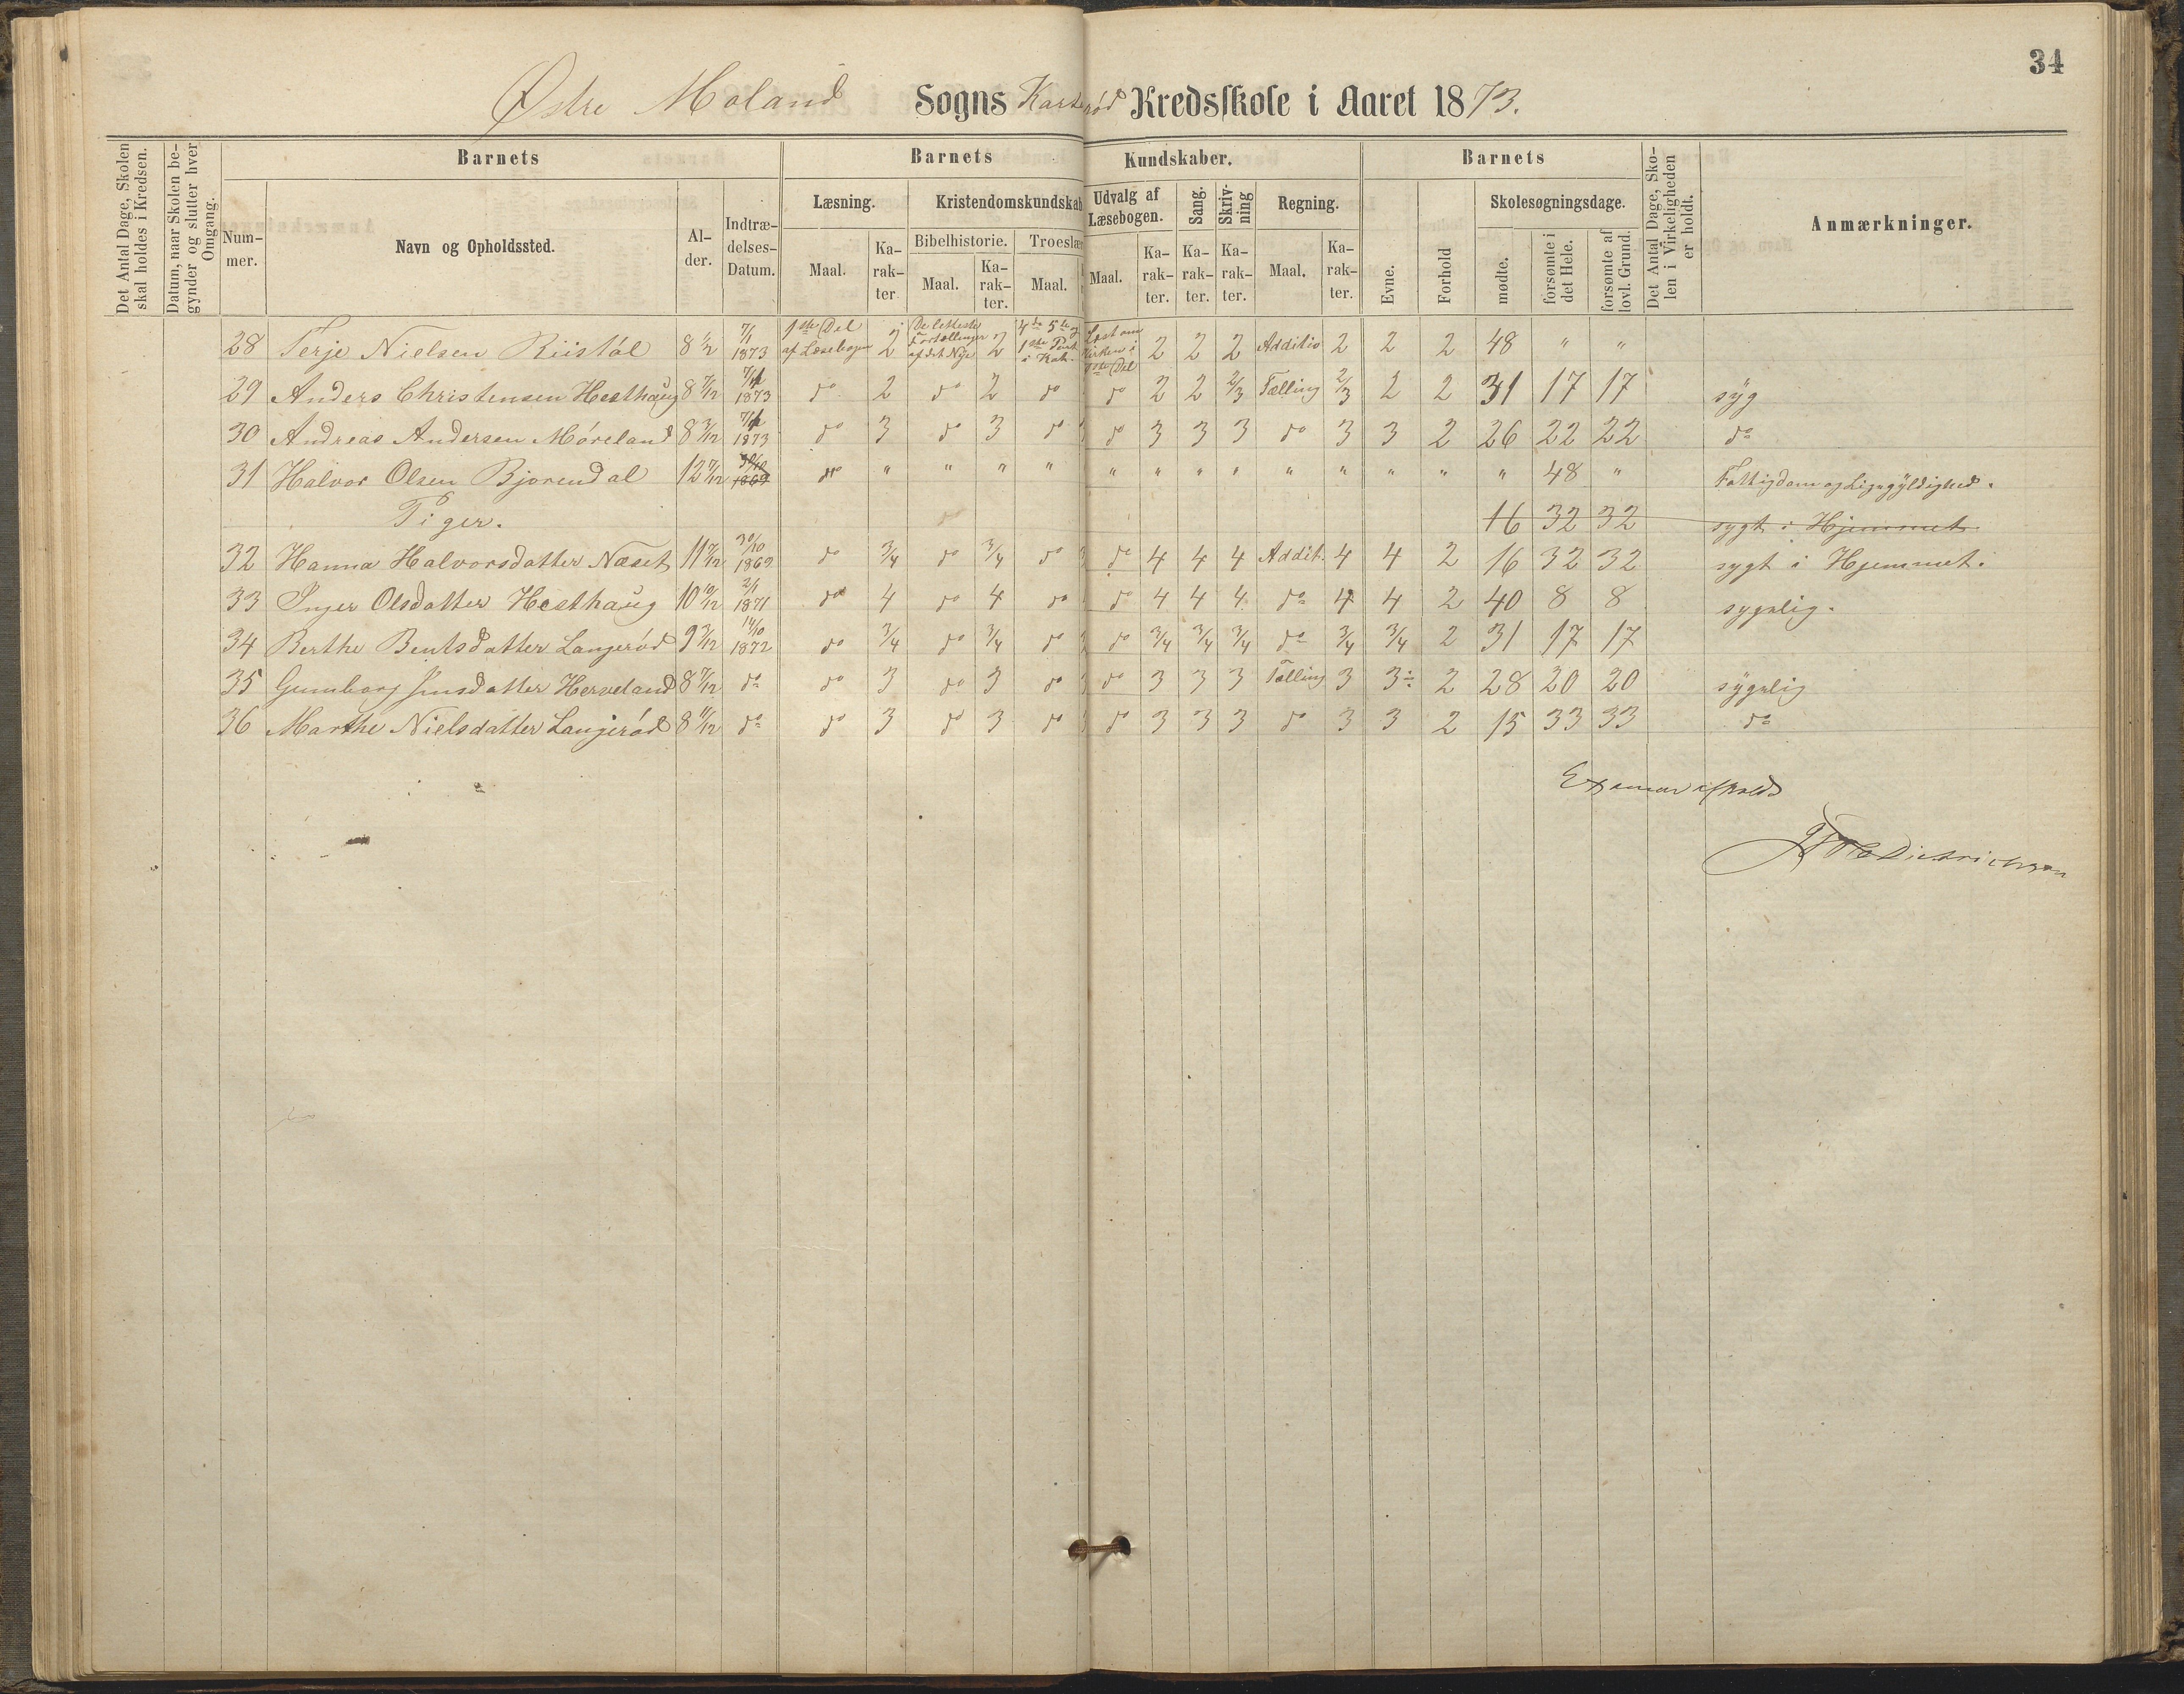 34
Østre Moland Sogns Kredsskole i Aaret 1873.
Det Antal Dage, Skolen skal holdes i Kredsen.
Datum, naar Skolen begynder og slutter hver Omgang.
Barnets
Barnets Kundskaber.
Barnets
Det Antal Dage, Skolen i Virkeligheden er holdt.
Anmærkninger.
Nummer.
Navn og Opholdssted.
Alder.
Indtrædelses-Datum.
Læsning.
Kristendomskundskab
Udvalg af Læsebogen.
Sang.
Skrivning
Regning.
Evne.
Forhold
Skolesøgningsdage.
Bibelhistorie.
Troeslær
Maal. Karakter Maal. Karakter. Maal. Maal. Karakter. Karakter. Karakter. Maal. Karakter.
mødte. forsømte i det Hele. forsømte af lovl. Grund.
28 Terje Nielsen Riistøl 8 1/2 7/1 1873 1ste Del af Læsebogen 2 De letteste Fortællinger af det Nye 2 4de 5te og 1ste Part i Kat. Læst om Kirken i 1ste Del 2 2 2 Additio 2 2 2 48 " "
29 Anders Christensen Hesthaug 8 7/12 7/1 1873 do 2 do 2 do do 2 2 2/3 Tælling 2/3 2 2 31 17 17 syg
30 Andreas Andersen Møreland 8 3/12 7/1 1873 do 3 do 3 do do 3 3 3 do 3 3 2 26 22 22 do
31 Halvor Olsen Bjorendal 12 7/12 30/10 1869 do " " " " " " " " " " " " " 48 " Fattigdom og Ligegyldighed.
Piger. 16 32 32 sygt i Hjemmet
32 Hanna Halvorsdatter Næset 11 7/12 30/10 1869 do 3/4 do 3/4 do do 4 4 4 Addit. 4 4 2 16 32 32 sygt i Hjemmet.
33 Inger Olsdatter Hesthaug 10 10/12 2/1 1871 do 4 do 4 do do 4 4 4 do 4 4 2 40 8 8 sygelig.
34 Berthe Bentsdatter Langerød 9 3/12 14/10 1872 do 3/4 do 3/4 do do 3/4 3/4 3/4 do 3/4 3/4 2 31 17 17
35 Gunnborg Jensdatter Herveland 8 7/12 do do 3 do 3 do do 3 3 3 Tælling 3 3÷ 2 28 20 20 sygelig
36 Marthe Nielsdatter Langerød 8 11/12 do do 3 do 3 do do 3 3 3 do 3 3 2 15 33 33 do
Examen afholdt
Dietrichson